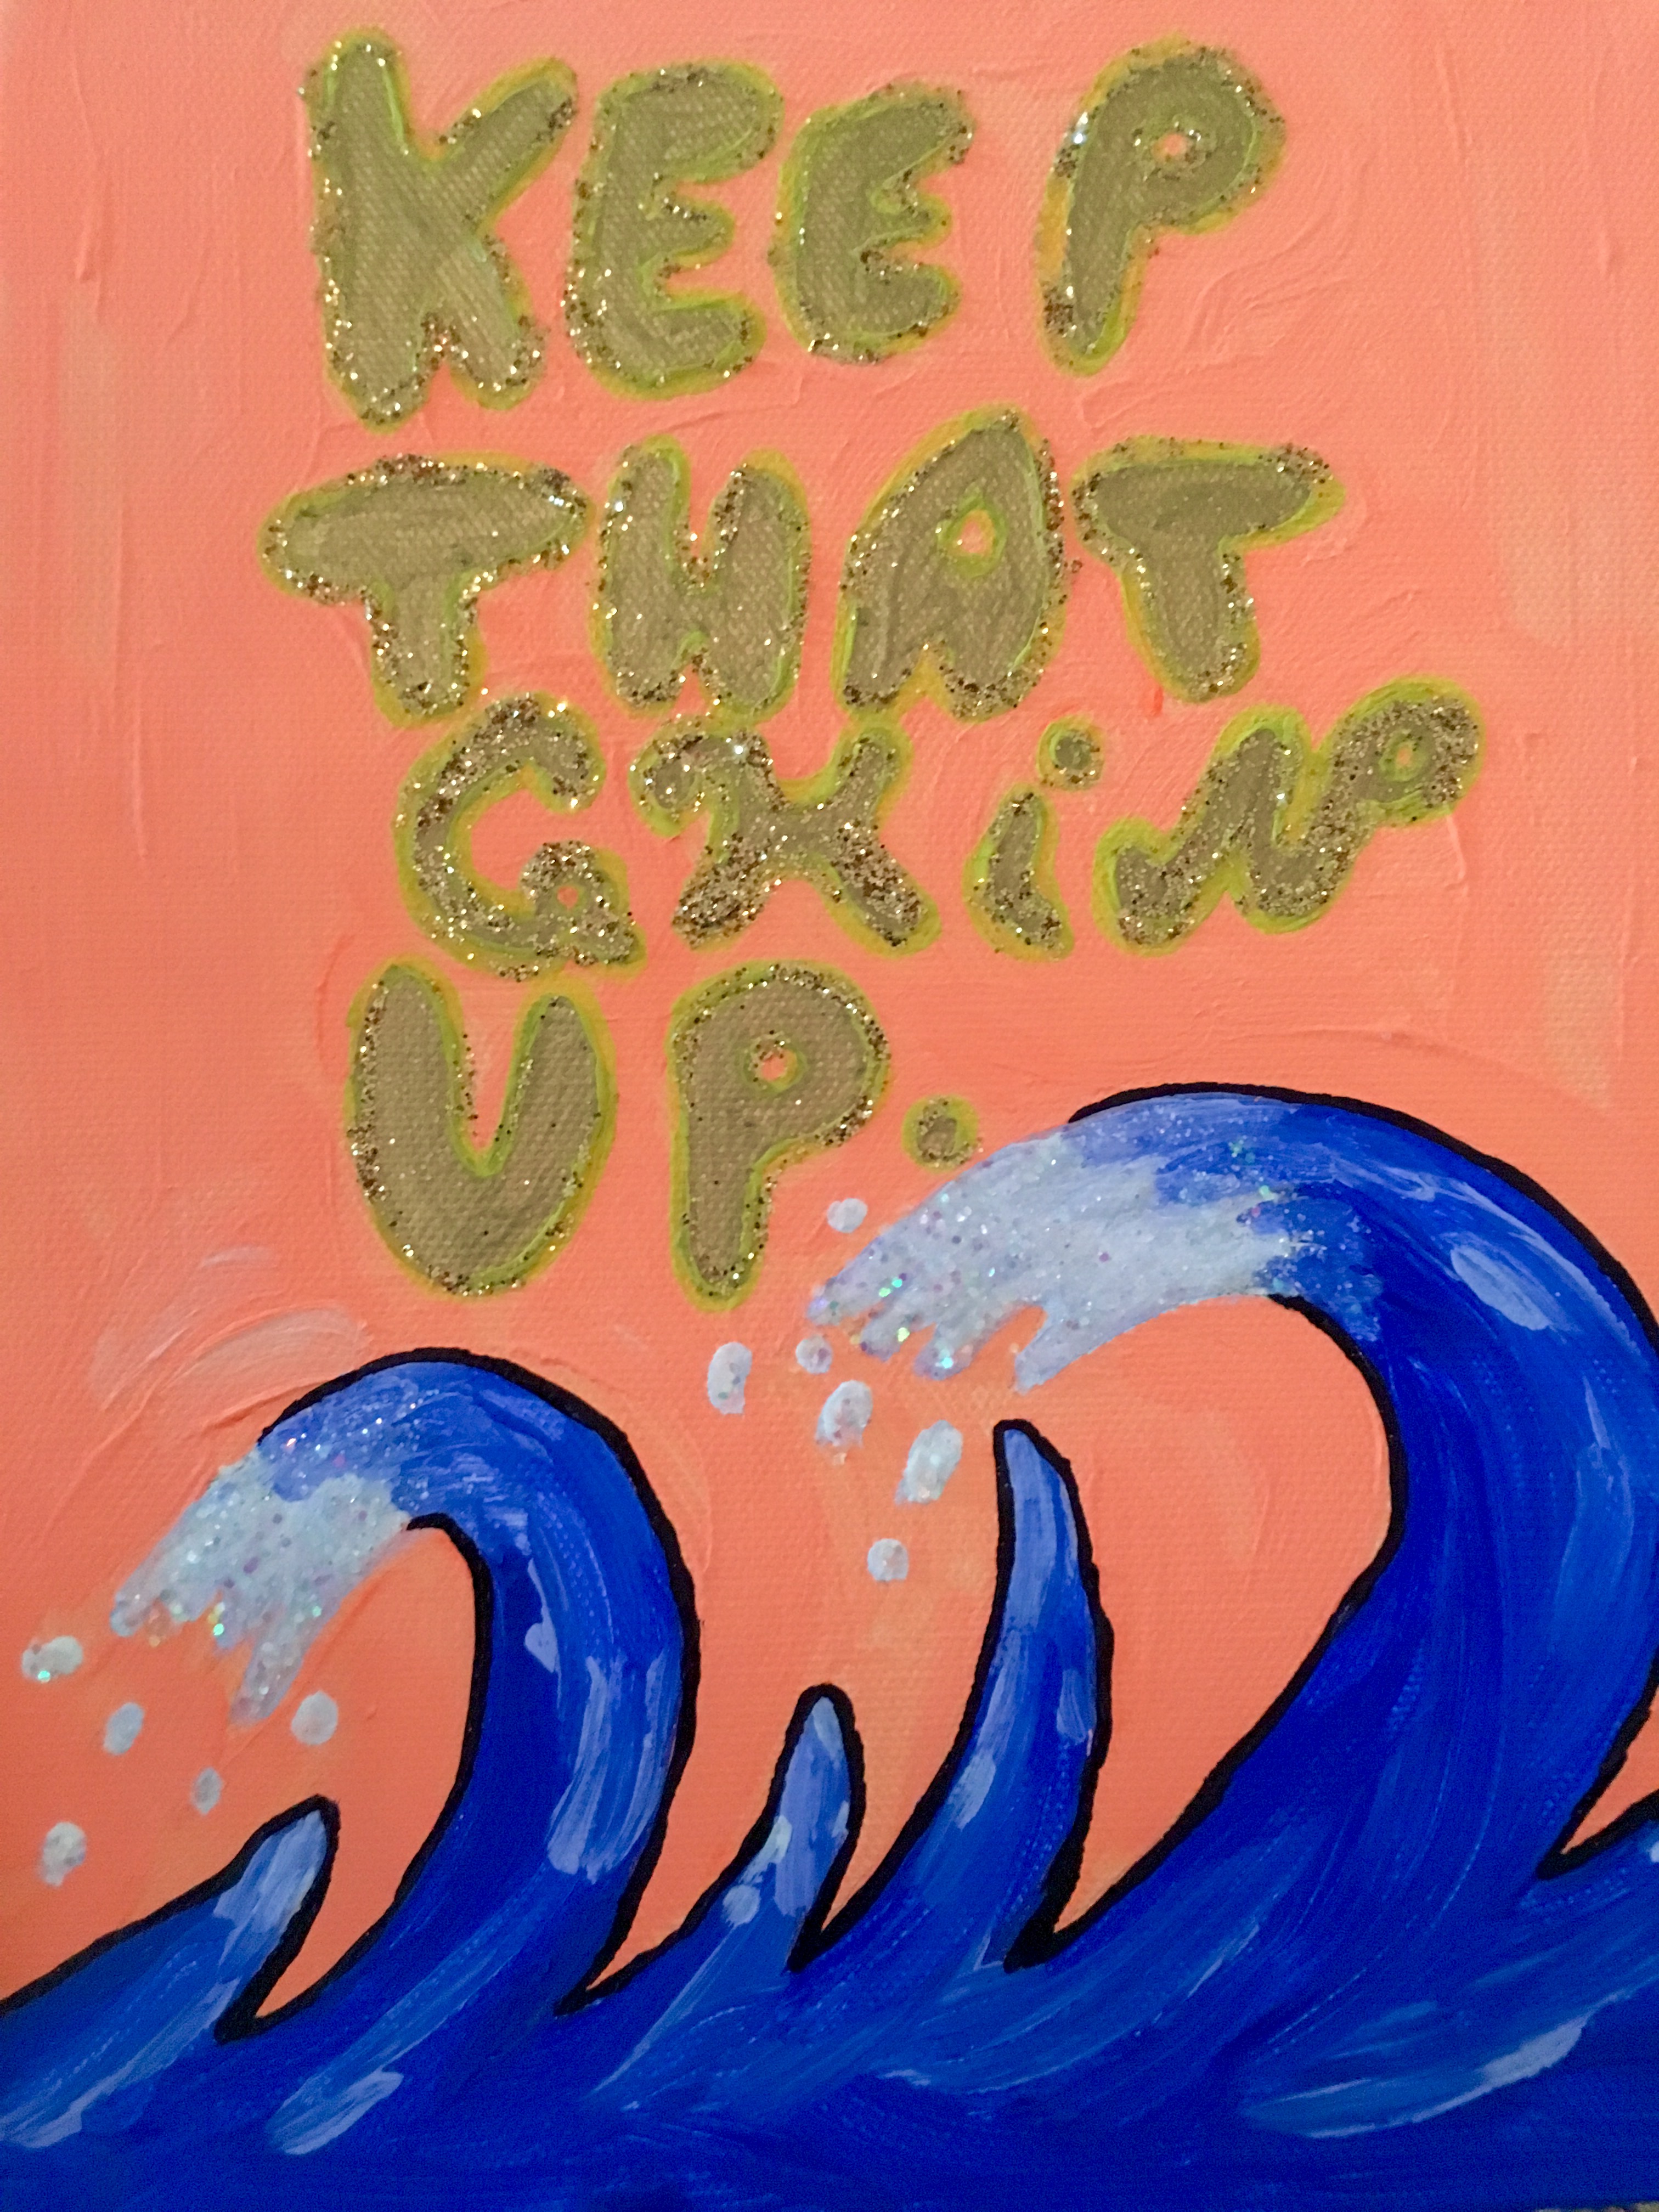 KEEP
THAT
CHiN
UP.